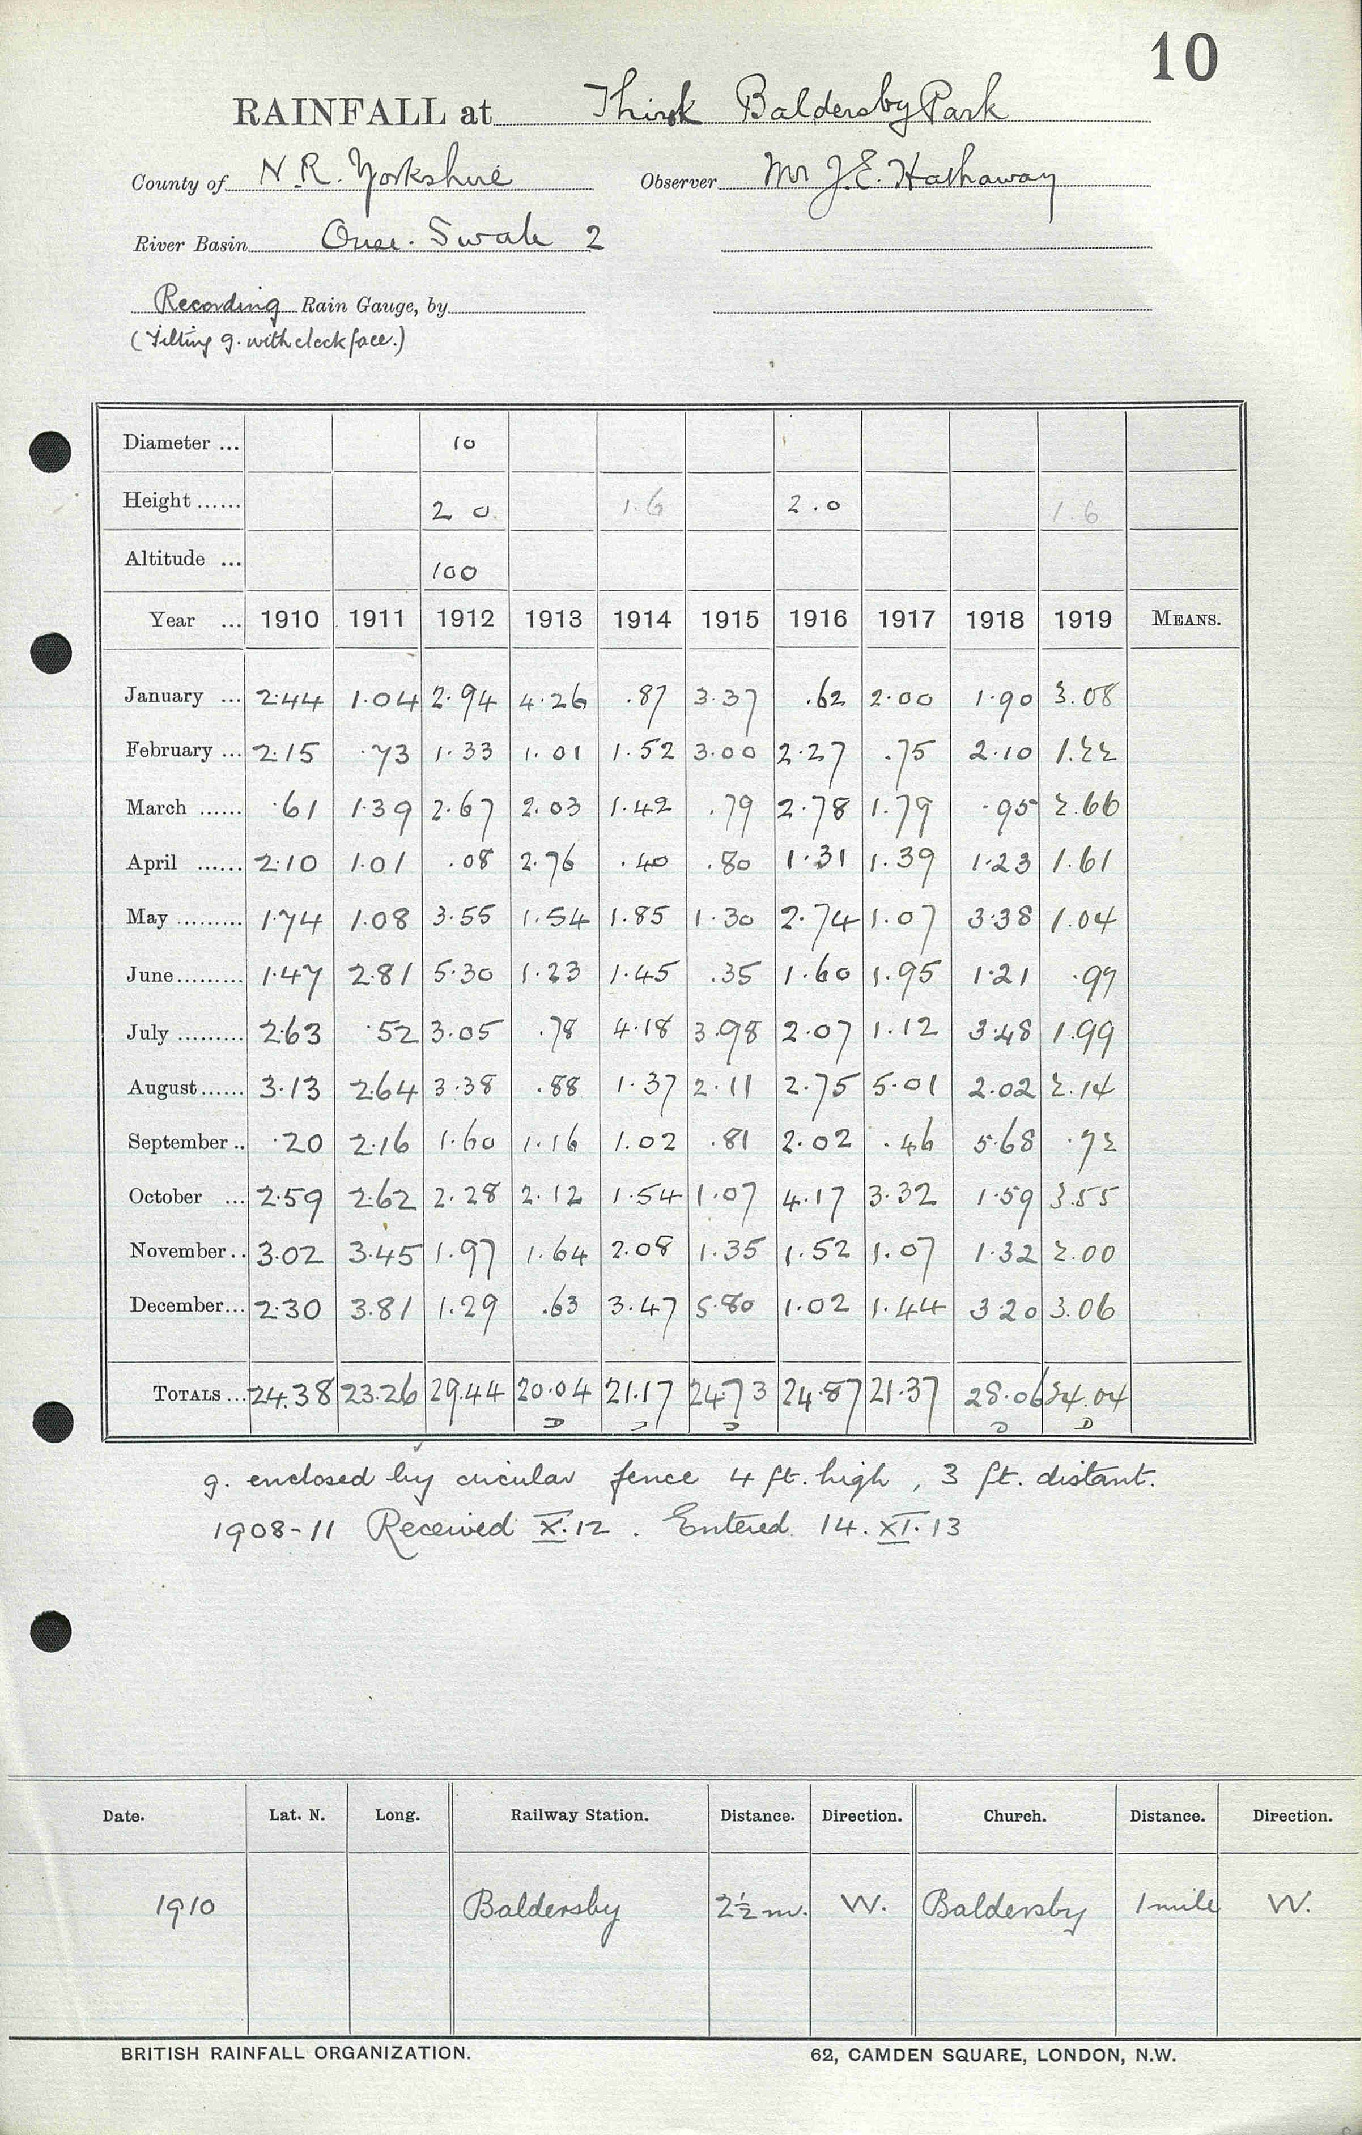 10
RAINFALL at Thirsk Baldersby Park
County of N.R. Yorkshire Observer Mr J.E. Hathaway
River Basin Ouse. Swale 2
Recording Rain Gauge, by
(Tilting g. with clock face.)
Diameter ... 10
Height ...... 2 0 1.6 2.0 1.6
Altitude ... 100
Year ... 1910 1911 1912 1913 1914 1915 1916 1917 1918 1919 MEANS.
January ... 2.44 1.04 2.94 4.26 .87 3.37 .62 2.00 1.90 3.08
February ... 2.15 .73 1.33 1.01 1.52 3.00 2.27 .75 2.10 1.22
March ...... .61 1.39 2.67 2.03 1.42 .79 2.78 1.79 .95 2.66
April ...... 2.10 1.01 .08 2.76 .40 .80 1.31 1.39 1.23 1.61
May ......... 1.74 1.08 3.55 1.54 1.85 1.30 2.74 1.07 3.38 1.04
June ......... 1.47 2.81 5.30 1.23 1.45 .35 1.60 1.95 1.21 .97
July ......... 2.63 .52 3.05 .78 4.18 3.98 2.07 1.12 3.48 1.99
August ...... 3.13 2.64 3.38 .88 1.37 2.11 2.75 5.01 2.02 2.14
September .. .20 2.16 1.60 1.16 1.02 .81 2.02 .46 5.68 .72
October ... 2.59 2.62 2.28 2.12 1.54 1.07 4.17 3.32 1.59 3.55
November .. 3.02 3.45 1.97 1.64 2.08 1.35 1.52 1.07 1.32 2.00
December ... 2.30 3.81 1.29 .63 3.47 5.80 1.02 1.44 3.20 3.06
TOTALS ... 24.38 23.26 29.44 20.04 21.17 24.73 24.87 21.37 28.06 24.04
g. enclosed by circular fence 4 ft. high, 3 ft. distant.
1908-11 Received X.12. Entered 14.XI.13
Date. Lat. N. Long. Railway Station. Distance. Direction. Church. Distance. Direction.
1910 Baldersby 2½ m. W. Baldersby 1 mile W.
BRITISH RAINFALL ORGANIZATION. 62, CAMDEN SQUARE, LONDON, N.W.